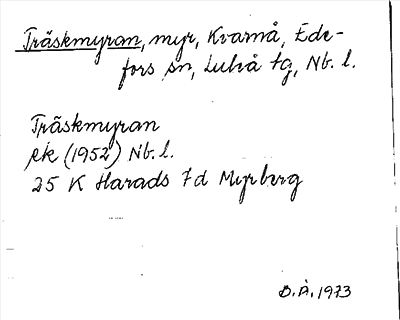 Träskmyran, myr, Kvarnå, Ede-
fors sn, Luleå tg, Nb. l.
Träskmyran
ek (1952) Nb. l.
25 K Harads 7d Myrberg
B.Å. 1973